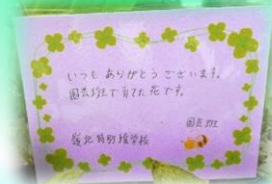 いつもありがとうございます。
園芸班で育てた花です。
園芸班
嶺北特別支援学校